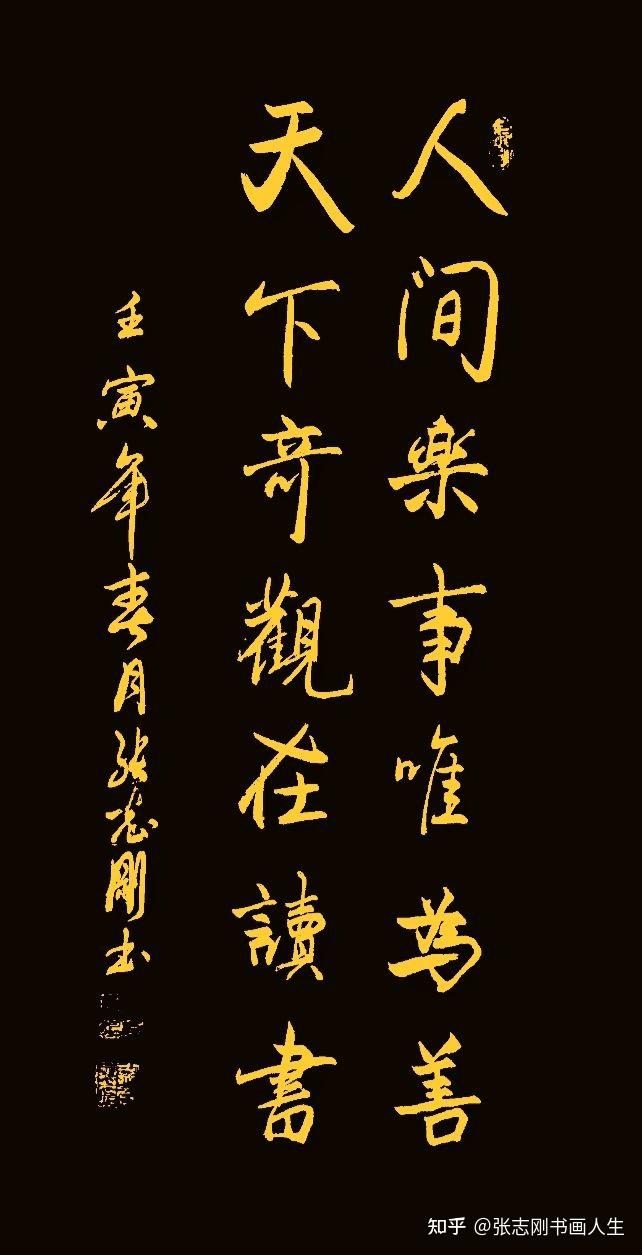 人間樂事唯為善
天下奇觀在讀書
壬寅年春月張志剛书
知乎 @张志刚书画人生